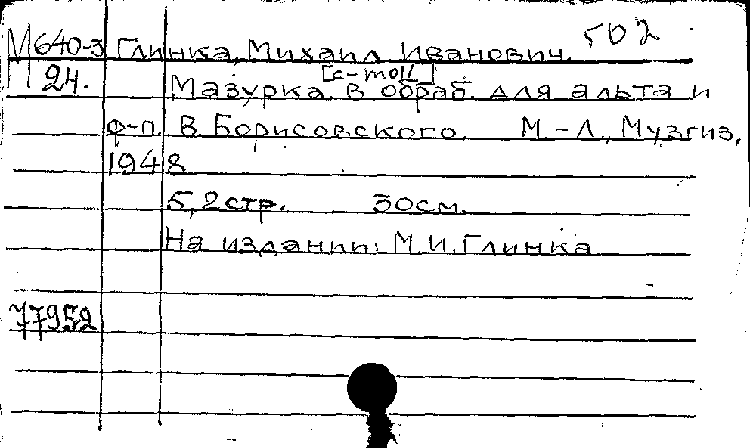 М640-3 Глинка, Михаил Иванович. 502
М 24. [c-moll]
Мазурка. В обраб. для альта и
ф-п. В. Борисовского. М.-Л., Музгиз,
1948
5,2 стр. 30см.
На издании: М.И.Глинка
77952